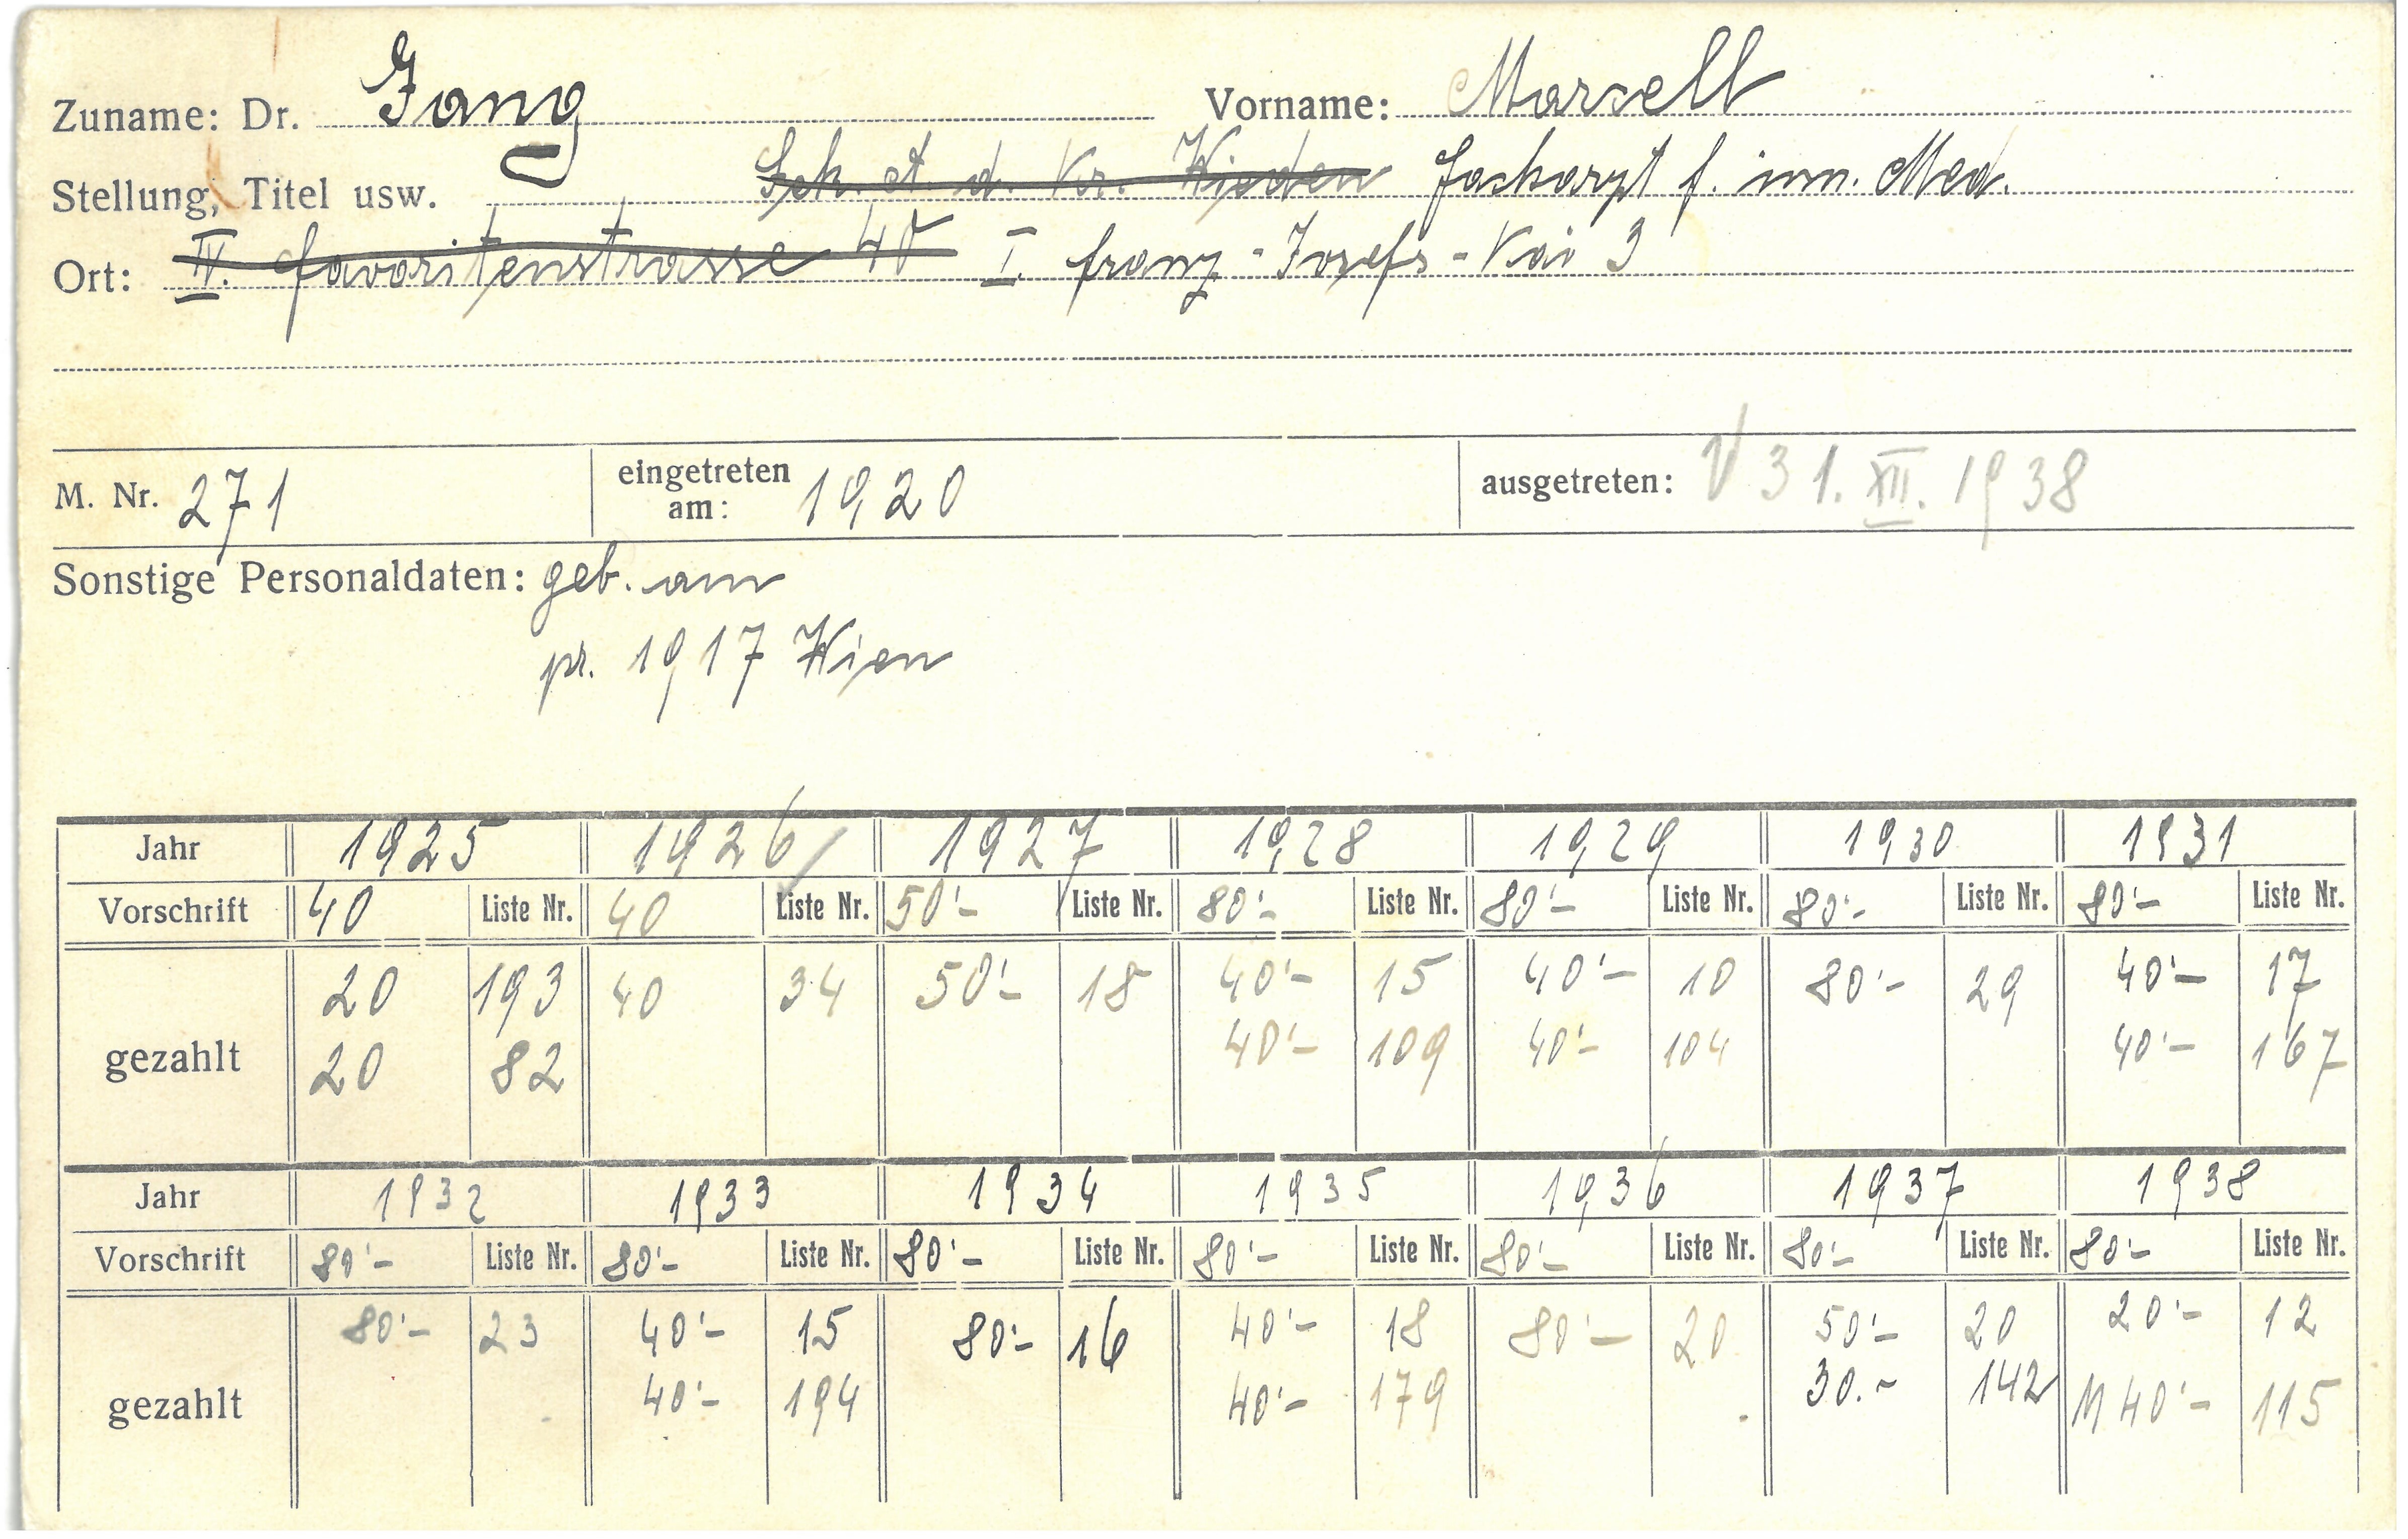 Zuname: Dr. Fang Vorname: Marcell
Stellung, Titel usw. Sek. at. d. Kr. Wieden Facharzt f. inn. Med.
Ort: IV. Favoritenstrasse 40 I. Franz-Josefs-Kai 3
M. Nr. 271 eingetreten am: 1920 ausgetreten: 31. XII. 1938
Sonstige Personaldaten: geb. am
pr. 1917 Wien
Jahr 1925 1926 1927 1928 1929 1930 1931
Vorschrift 40 Liste Nr. 40 Liste Nr. 50'- Liste Nr. 80'- Liste Nr. 80'- Liste Nr. 80'- Liste Nr. 80'- Liste Nr.
gezahlt 20 193 40 34 50'- 18 40'- 15 40'- 10 80'- 29 40'- 17
20 82 40'- 109 40'- 104 40'- 167
Jahr 1932 1933 1934 1935 1936 1937 1938
Vorschrift 80'- Liste Nr. 80'- Liste Nr. 80'- Liste Nr. 80'- Liste Nr. 80'- Liste Nr. 80'- Liste Nr. 80'- Liste Nr.
gezahlt 80'- 23 40'- 15 80'- 16 40'- 18 80'- 20 50'- 20 20'- 12
40'- 194 40'- 179 30.- 142 40'- 115